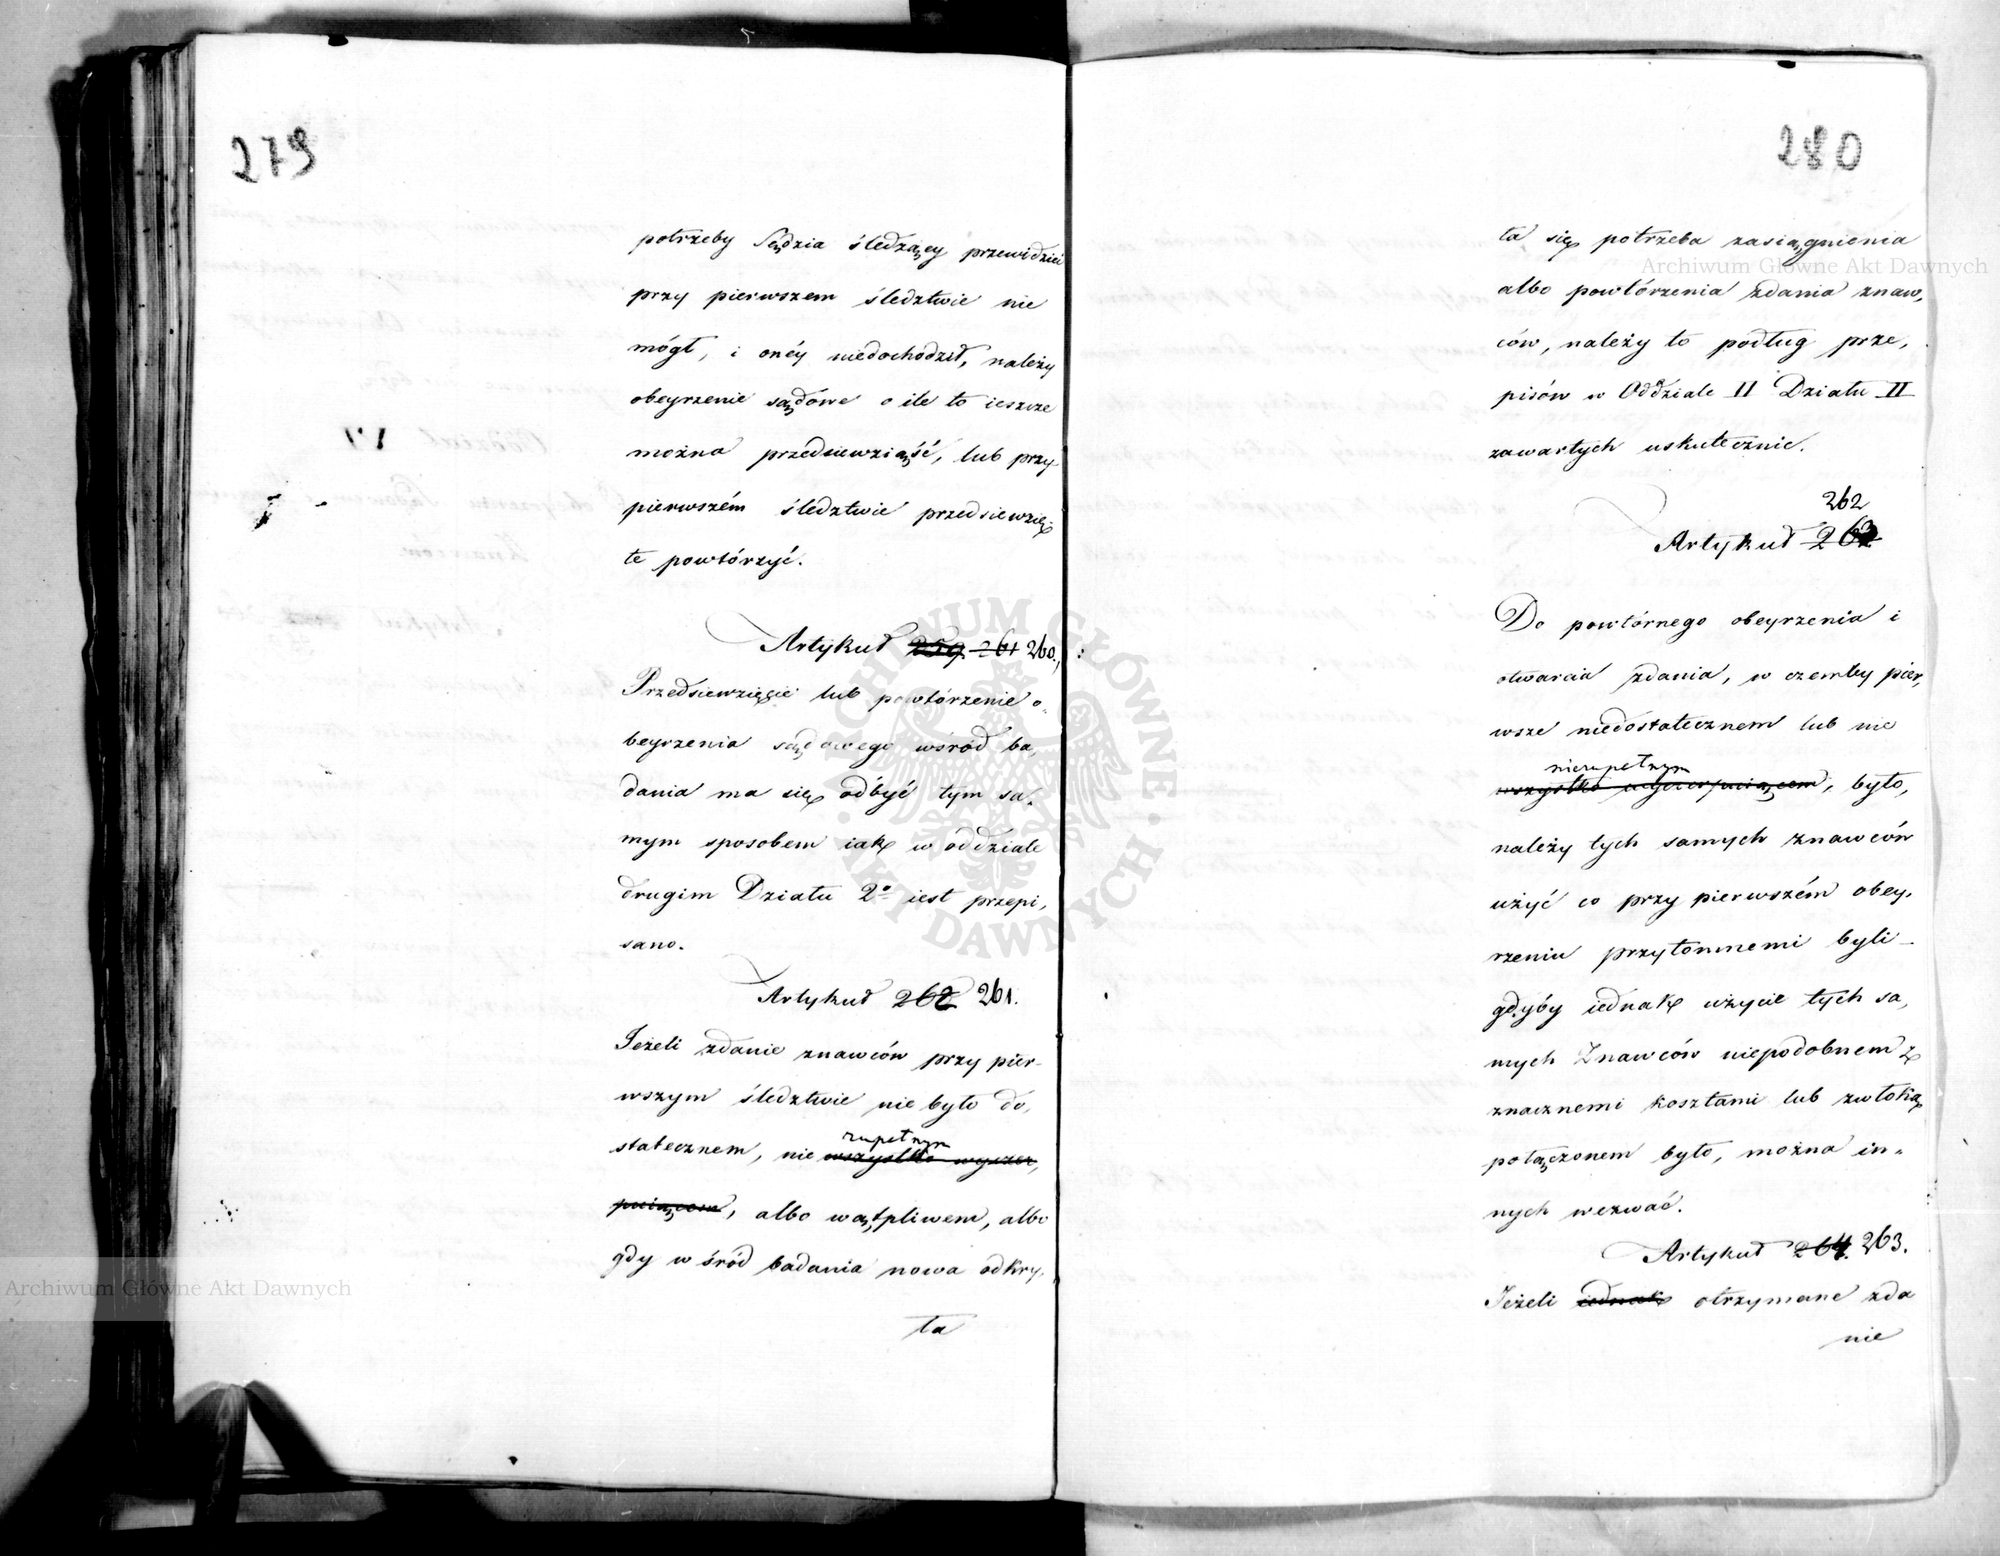 279
potrzeby Sędzia śledzący przewidzieć
przy pierwszem śledztwie nie
mógł, i onéy niedochodził, należy
obeyrzenie sądowe o ile to ieszcze
można przedsiewziąść, lub przy
pierwszém śledztwie przedsiewzię-
te powtórzyć.
Artykuł 259 261 260.
Przedsiewzięcie lub powtórzenie o-
beyrzenia sądowego wśród ba-
dania ma się odbyć tym sa-
mym sposobem iak w oddziale
drugim Działu 2o iest przepi-
sano.
Artykuł 262 261.
Ieżeli zdanie znawców przy pier-
wszym śledztwie nie było do-
statecznem, nie wszystko wyczer-
zupełnym
puiącem, albo wątpliwem, albo
gdy wśród badania nowa odkry-
ta
280
ta się potrzeba zasiągnienia
albo powtórzenia zdania znaw-
ców, należy to podług prze-
pisów w Oddziale II Działu II
zawartych uskutecznić.
262
Artykuł 263
Do powtórnego obeyrzenia i
otwarcia zdania, w czemby pier-
wsze niedostatecznem lub nie
niezupełnym
wszystko wyczerpuiącem, było,
należy tych samych znawców
użyć co przy pierwszém obey-
rzeniu przytomnemi byli -
gdyby iednak użycie tych sa-
mych Znawców niepodobnem z
znacznemi kosztami lub zwłoką
połączonem było, można in-
nych wezwać.
Artykuł 264. 263.
Ieżeli iednak otrzymane zda
nie
Archiwum Główne Akt Dawnych
Archiwum Główne Akt Dawnych
ARCHIWUM GŁÓWNE AKT DAWNYCH